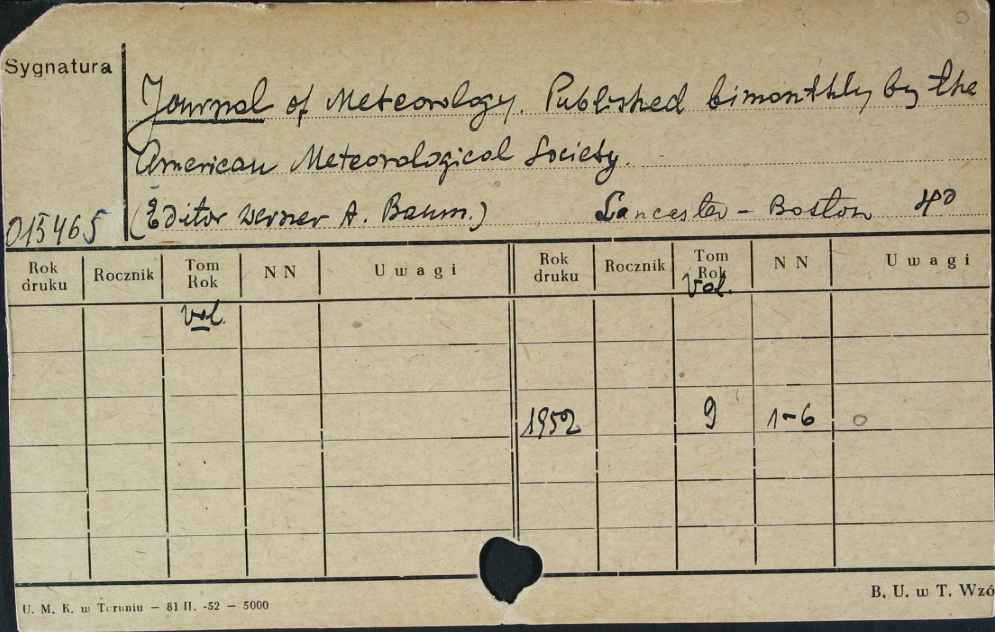 Sygnatura
Journal of Meteorology. Published bimonthly by the
American Meteorological Society.
015465 (Editor Werner A. Baum.) Lancester - Boston 4º
Rok druku Rocznik Tom Rok NN Uwagi Rok druku Rocznik Tom Rok NN Uwagi
vol. Vol.
1952 9 1-6 o
U. M. K. w Toruniu — 81 II. -52 — 5000 B. U. w T. Wzó